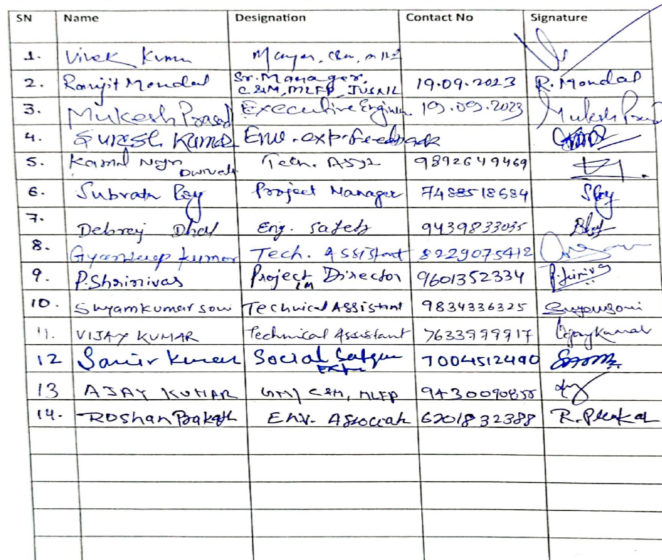 SN Name Designation Contact No Signature
1. Vivek Kumar
2. Ranjit Mondal Sr. Manager, C&M, MLFP, JUSNL 19.09.2023 R. Mondal
3. Mukesh Prasad Executive Engineer 19.09.2023
4. Suresh Kumar Env. exp. feedback
5. Kamal Tech. Asst 9892649469
6. Subrata Roy Project Manager 7488518684 SRoy
7. Debraj Dhal Eng. Safety 9439833035
8. Gyandeep Kumar Tech. Assistant 8229075412
9. P. Shrinivas Project Director 9601352334
10. Shyamkumar soni Technical Assistant 9834336325
11. VIJAY KUMAR Technical Assistant 7633999917
12 Samir Kumar Social 7004512490
13 AJAY KUMAR GM, C&M, MLFP 9430090855
14. Roshan Env. Associate 6201832388